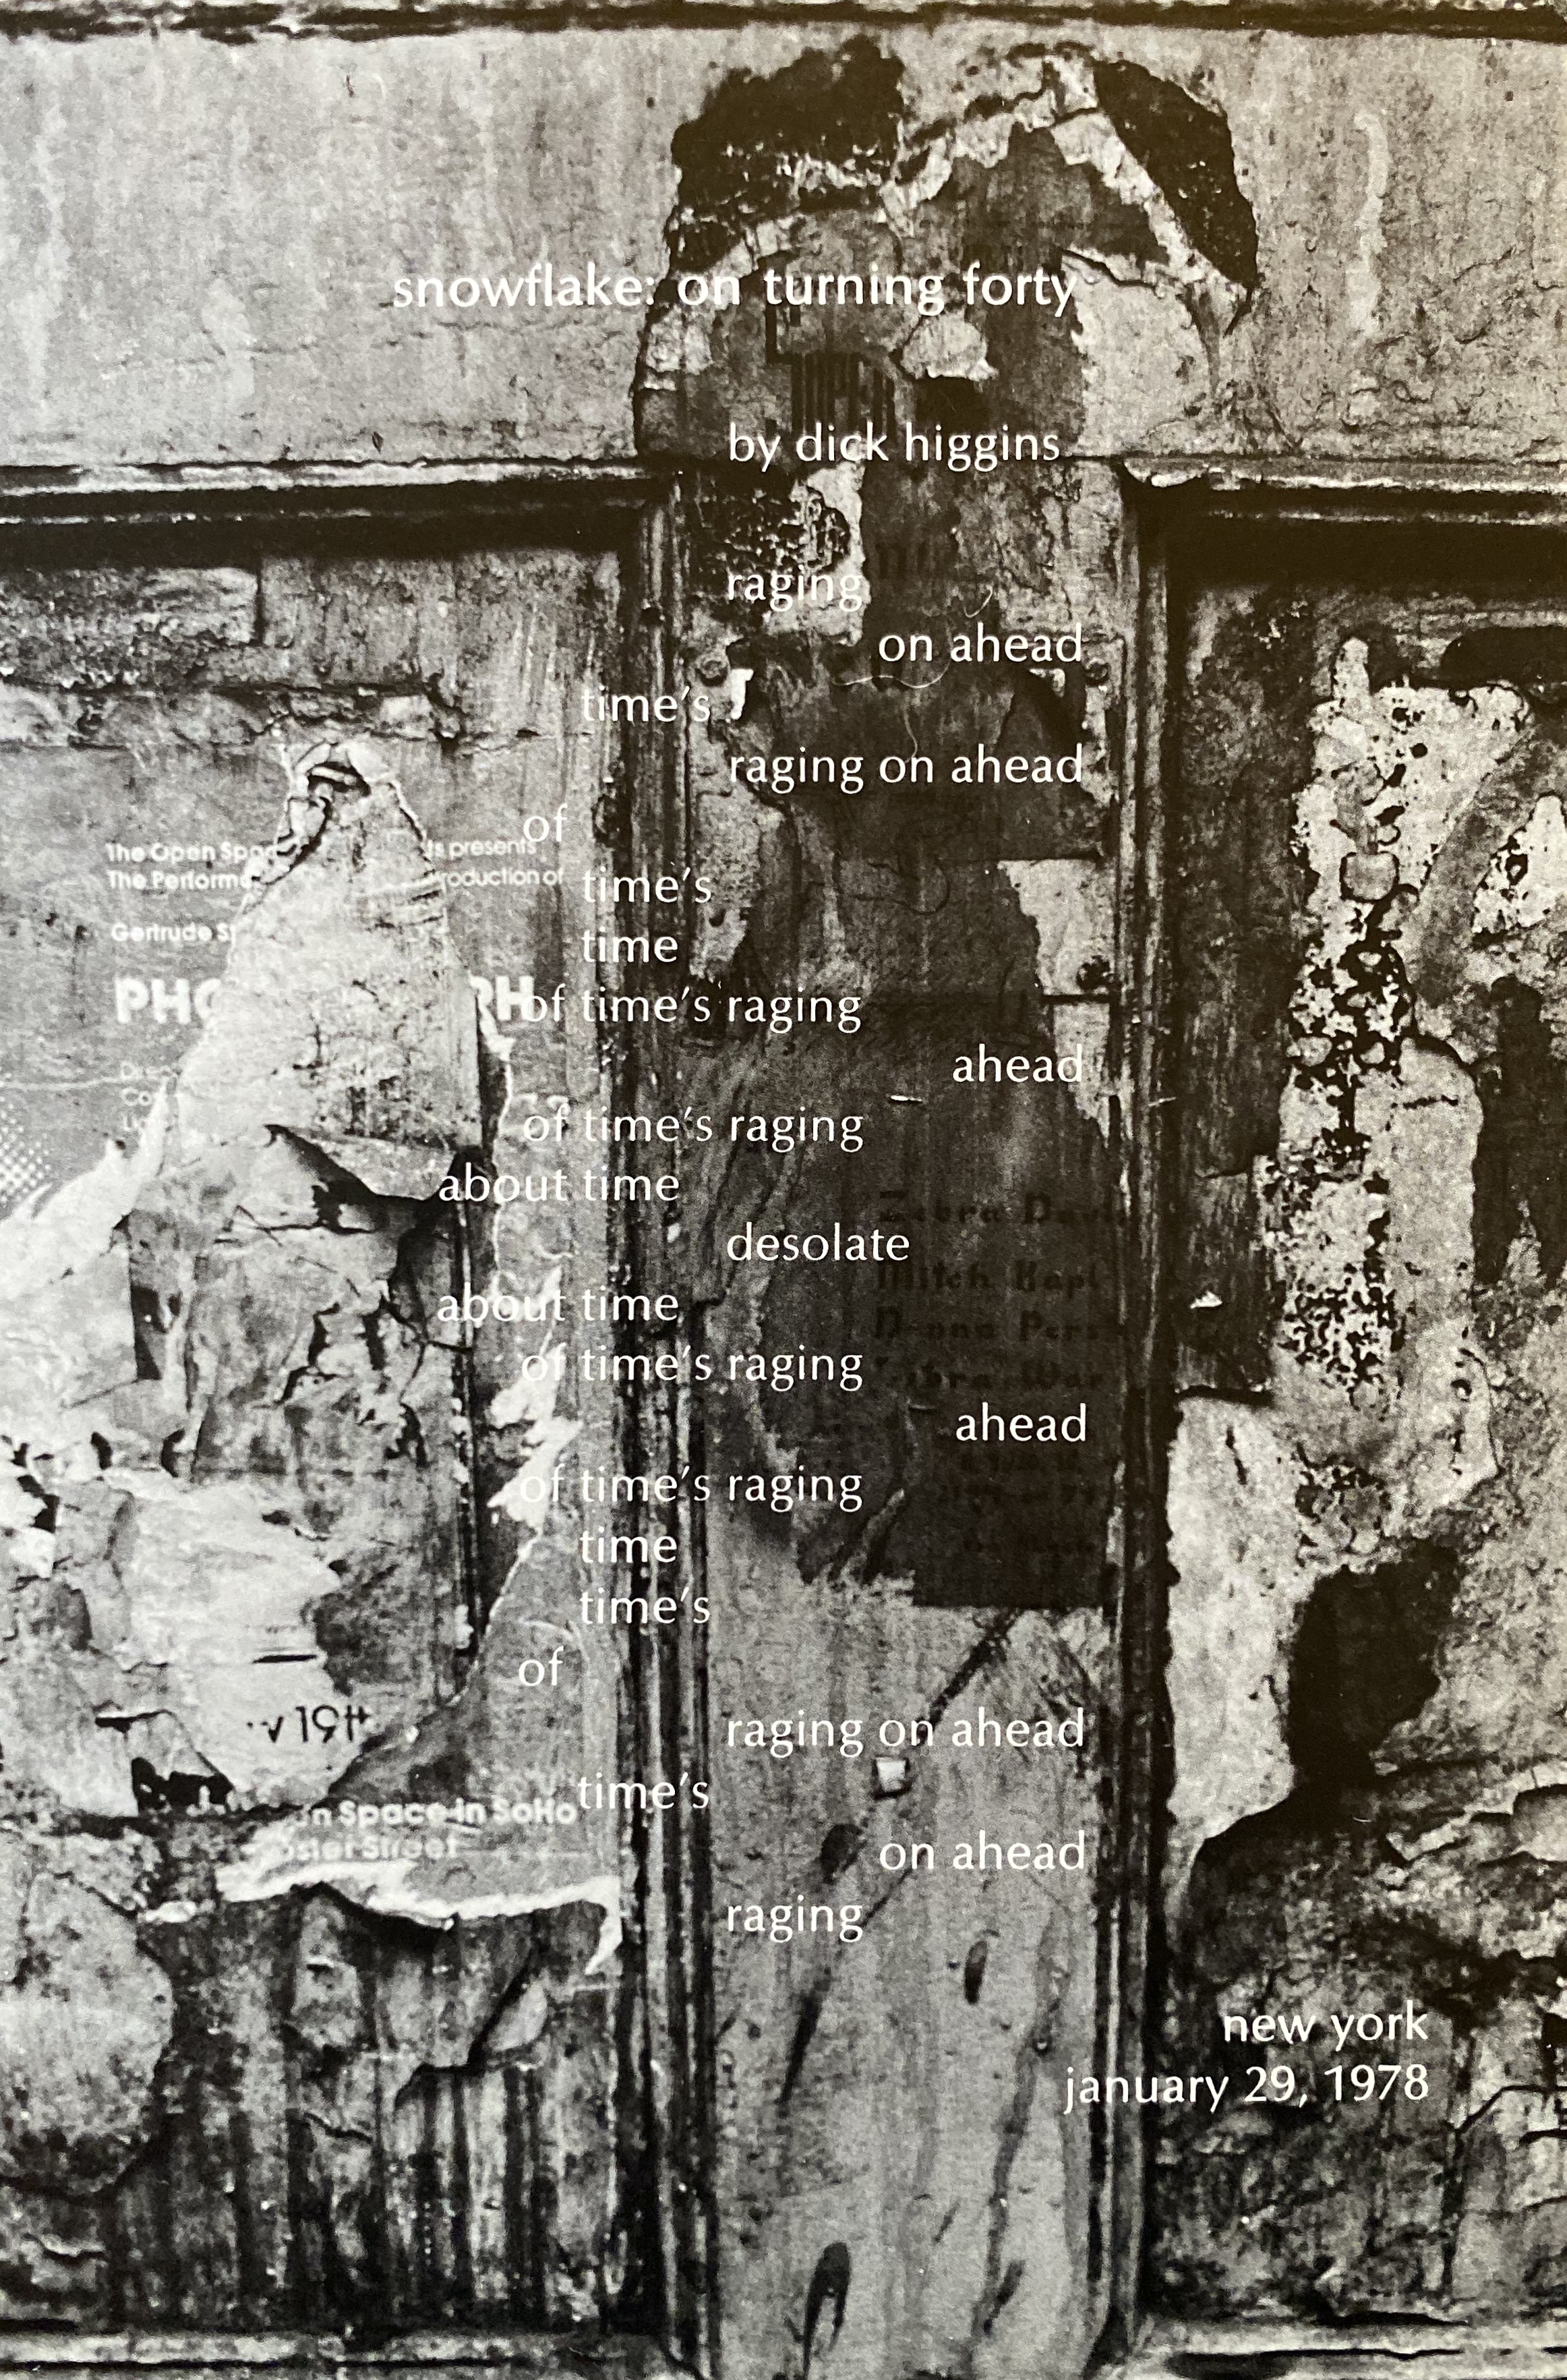 snowflake: on turning forty
by dick higgins
raging
on ahead
time's
raging on ahead
of
time's
time
of time's raging
ahead
of time's raging
about time
desolate
about time
of time's raging
ahead
of time's raging
time
time's
of
raging on ahead
time's
on ahead
raging
new york
january 29, 1978
The Open Spa ts presents
The Performa roduction of
Gertrude S
PHO PH
v 19t
n Space in SoHo
oster Street
Zebra Davi
Mitch Kapl
Donna Pers